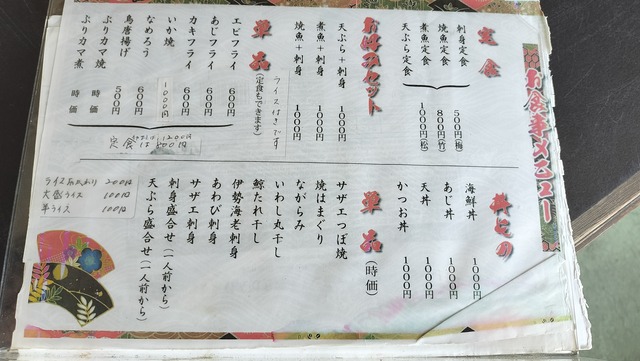 お食事メニュー
定食
刺身定食
焼魚定食
煮魚定食
天ぷら定食
500円(梅)
800円(竹)
1000円(松)
おはみセット
天ぷら+刺身 1000円
煮魚+刺身 1000円
焼魚+刺身 1000円
ライス付きです
単品(定食もできます)
エビフライ 600円
あじフライ 600円
カキフライ 600円
いか焼 1000円
なめろう 600円
鳥唐揚げ 500円
ぶりカマ焼 時価
ぶりカマ煮 時価
丼もの
海鮮丼 1000円
あじ丼 1000円
天丼 1000円
かつお丼 1000円
単品(時価)
サザエつぼ焼
焼はまぐり
ながらみ
いわし丸干し
鯨たれ干し
伊勢海老刺身
あわび刺身
サザエ刺身
刺身盛合せ(一人前から)
天ぷら盛合せ(一人前から)
ライスおかわり 200円
大盛ライス 100円
半ライス 100円